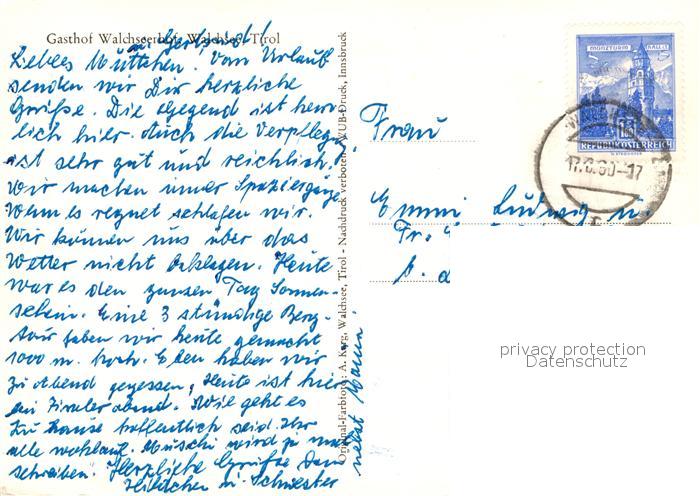 Gasthof Walchseerhof, Walchsee, Tirol
u. Gertraud!
Liebes Muttchen! Vom Urlaub
senden wir Dir herzliche
Grüße. Die Gegend ist herr-
lich hier. Auch die Verpflegung
ist sehr gut und reichlich.
Wir machen unser Spaziergänge
Wenn es regnet schlafen wir.
Wir können uns über das
Wetter nicht beklagen. Heute
war es den ganzen Tag Sonnen-
schein. Eine 3 stündige Berg-
tour haben wir heute gemacht
1000 m. hoch. Eben haben wir
zu Abend gegessen, Heute ist hier
ein Tiroler abend. Wie geht es
zu Hause hoffentlich seid Ihr
alle wohlauf. Muschi wird ja mal
schreiben. Herzliche Grüße Dein
u. Schwester
nebst
Original-Farbfoto: A. Karg, Walchsee, Tirol - Nachdruck verboten - WUB-Druck, Innsbruck
MÜNZTURM HALL I.T.
REPUBLIK ÖSTERREICH
-17
Frau
Emmi Ludwig u.
Fr.
privacy protection
Datenschutz